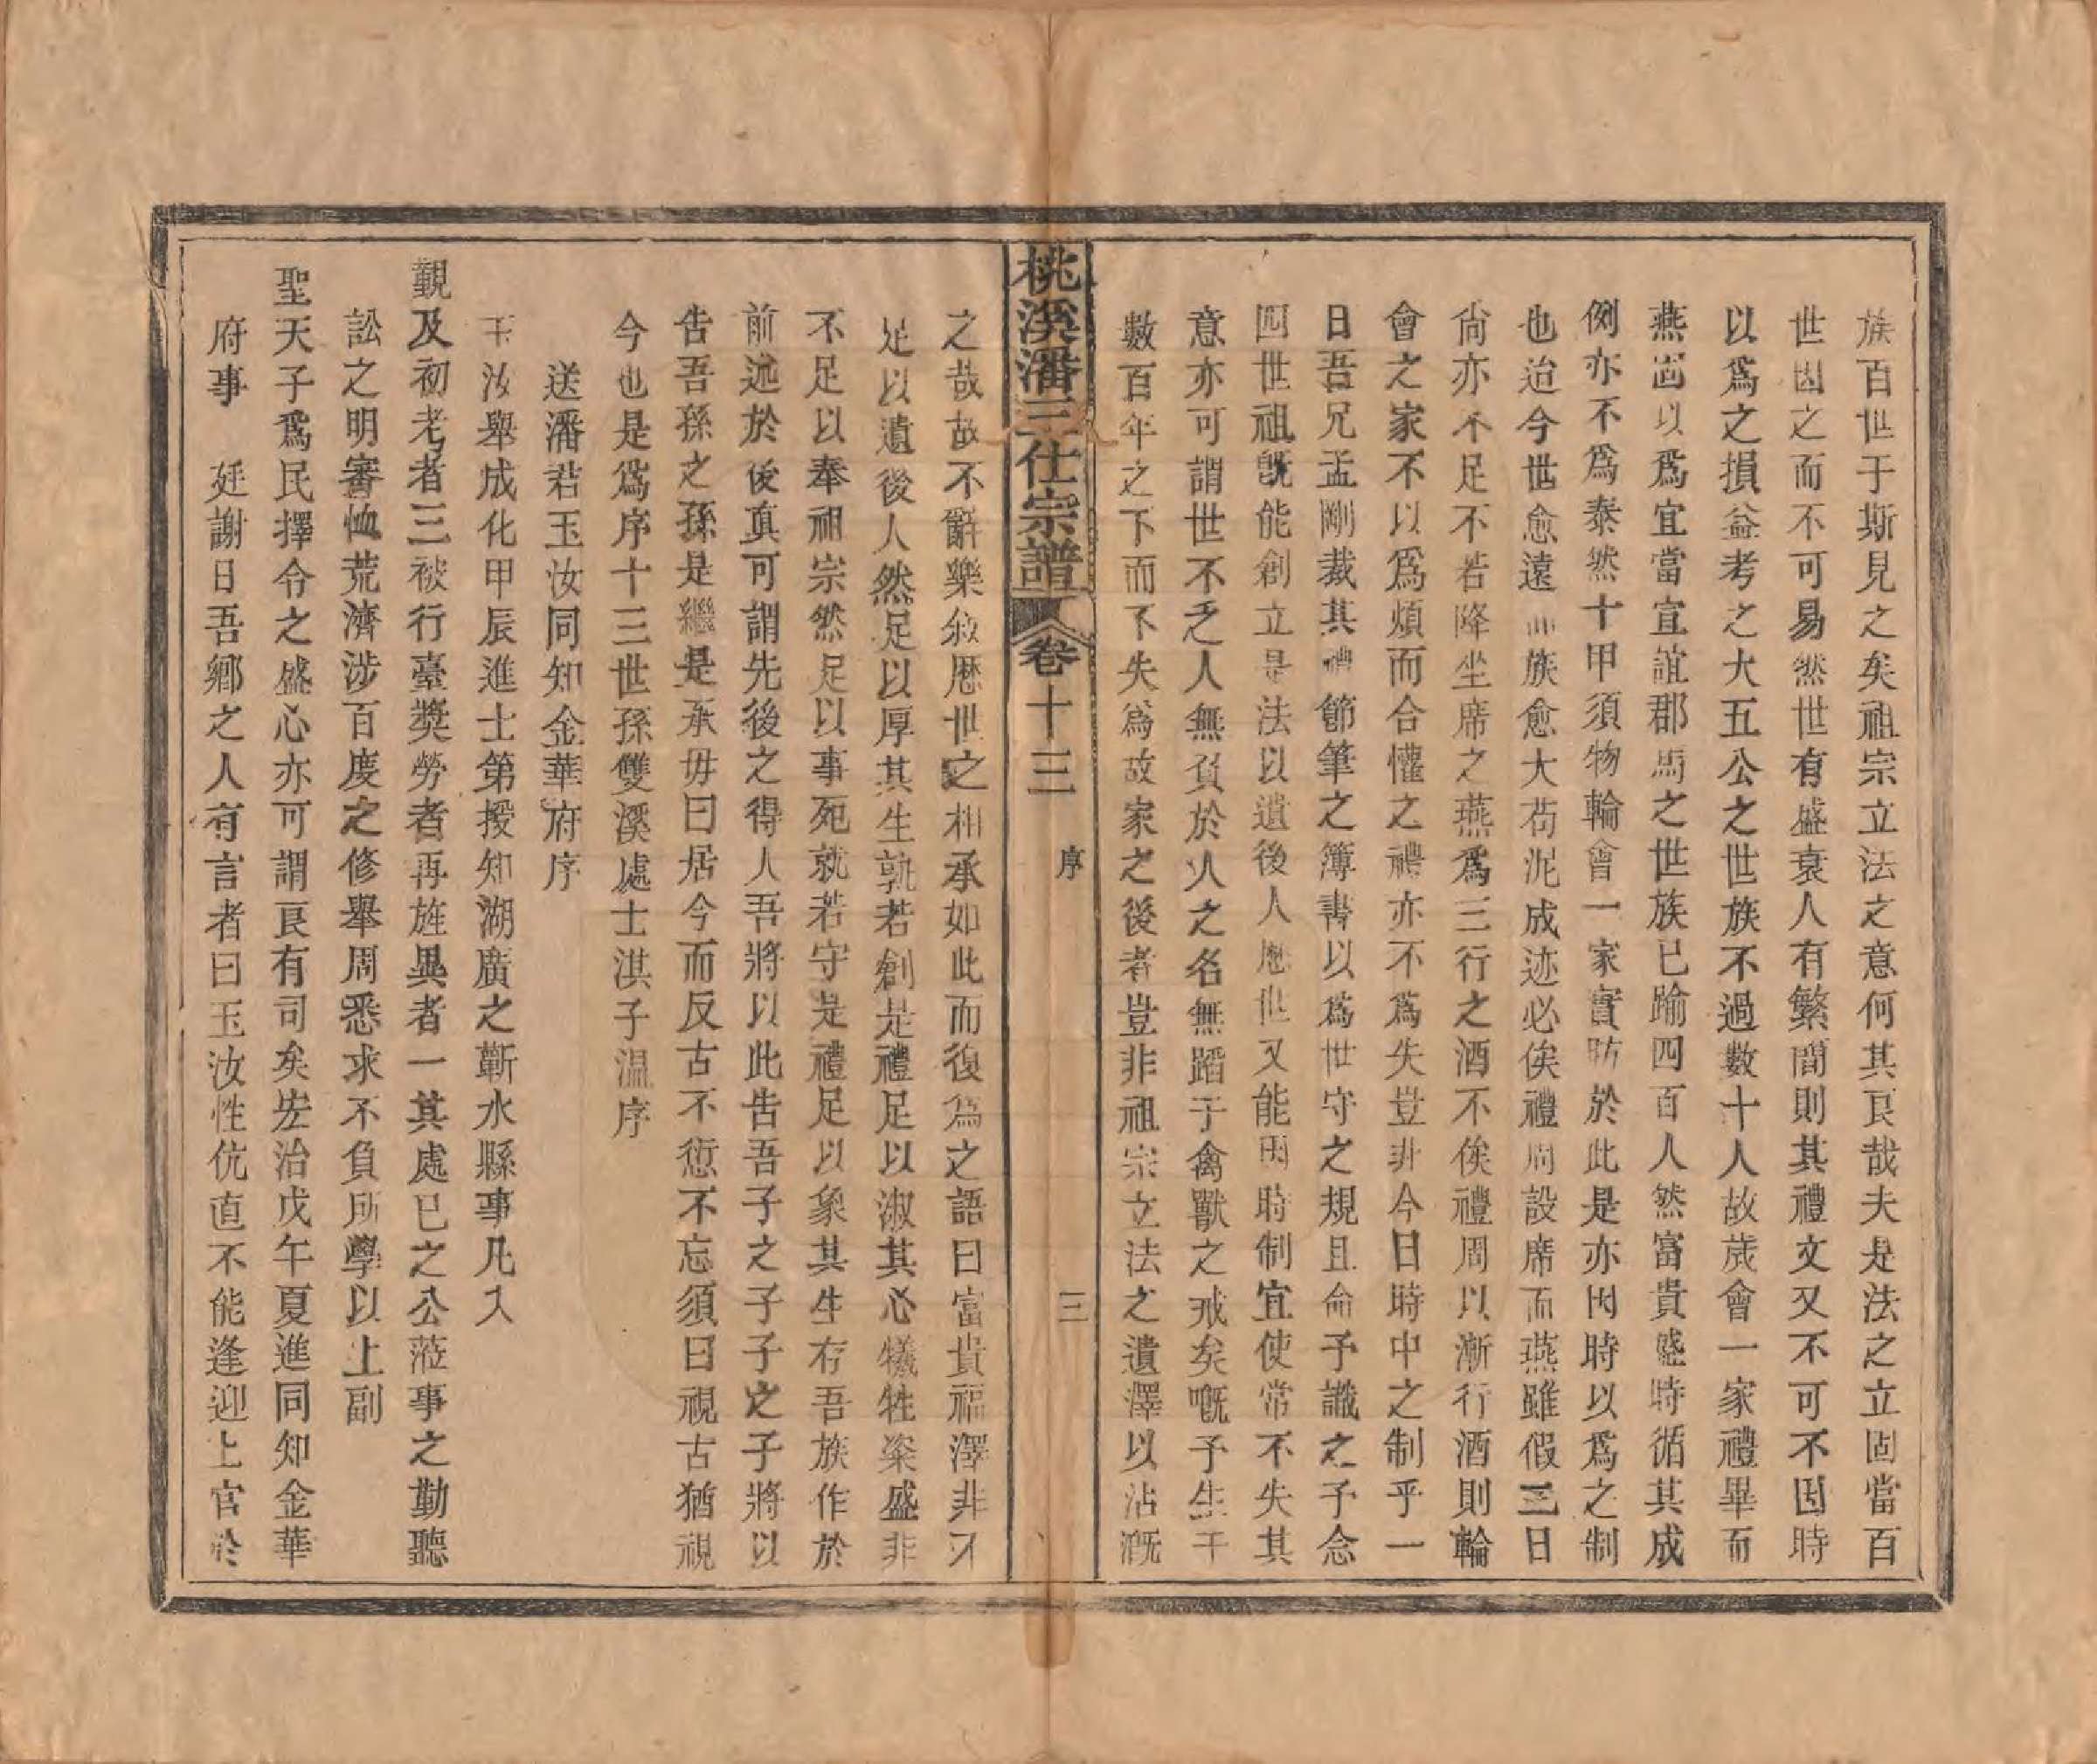 族百世于斯見之矣祖宗立法之意何其良哉夫是法之立固當百
世因之而不可易然世有盛衰人有繁簡則其禮文又不可不因時
以爲之損益考之大五公之世族不過數十人故歲會一家禮畢而
燕固以爲宜當宣誼郡馬之世族已踰四百人然富貴盛時循其成
例亦不爲泰然十甲須物輪會一家實昉於此是亦因時以爲之制
也迨今世愈遠而族愈大苟泥成迹必俟禮周設席而燕雖假三日
尙亦不足不若降坐席之燕爲三行之酒不俟禮周以漸行酒則輪
會之家不以爲煩而合懽之禮亦不爲失豈非今日時中之制乎一
日吾兄孟剛裁其禮節筆之簿書以爲世守之規且命予識之予念
四世祖旣能創立是法以遺後人歷世又能因時制宜使常不失其
意亦可謂世不乏人無負於人之名無蹈于禽獸之戒矣嘅予生干
數百年之下而不失爲故家之後者豈非祖宗立法之遺澤以沾漑
桃溪潘三仕宗譜 卷十三 序 三
之哉故不辭樂敘歷世之相承如此而復爲之語曰富貴福澤非不
足以遺後人然足以厚其生孰若創是禮足以淑其心犧牲粢盛非
不足以奉祖宗然足以事死就若守是禮足以象其生存吾族作於
前述於後眞可謂先後之得人吾將以此告吾子之子子之子將以
告吾孫之孫是繼是承毋曰居今而反古不愆不忘須曰視古猶視
今也是爲序十三世孫雙溪處士淇子溫序
送潘君玉汝同知金華府序
玉汝舉成化甲辰進士第授知湖廣之蘄水縣事凡入
覲及初考者三被行臺獎勞者再旌異者一其處已之公蒞事之勤聽
訟之明審恤荒濟涉百廢之修舉周悉求不負所學以上副
聖天子爲民擇令之盛心亦可謂良有司矣宏治戊午夏進同知金華
府事 廷謝日吾鄉之人有言者曰玉汝性伉直不能逢迎上官於